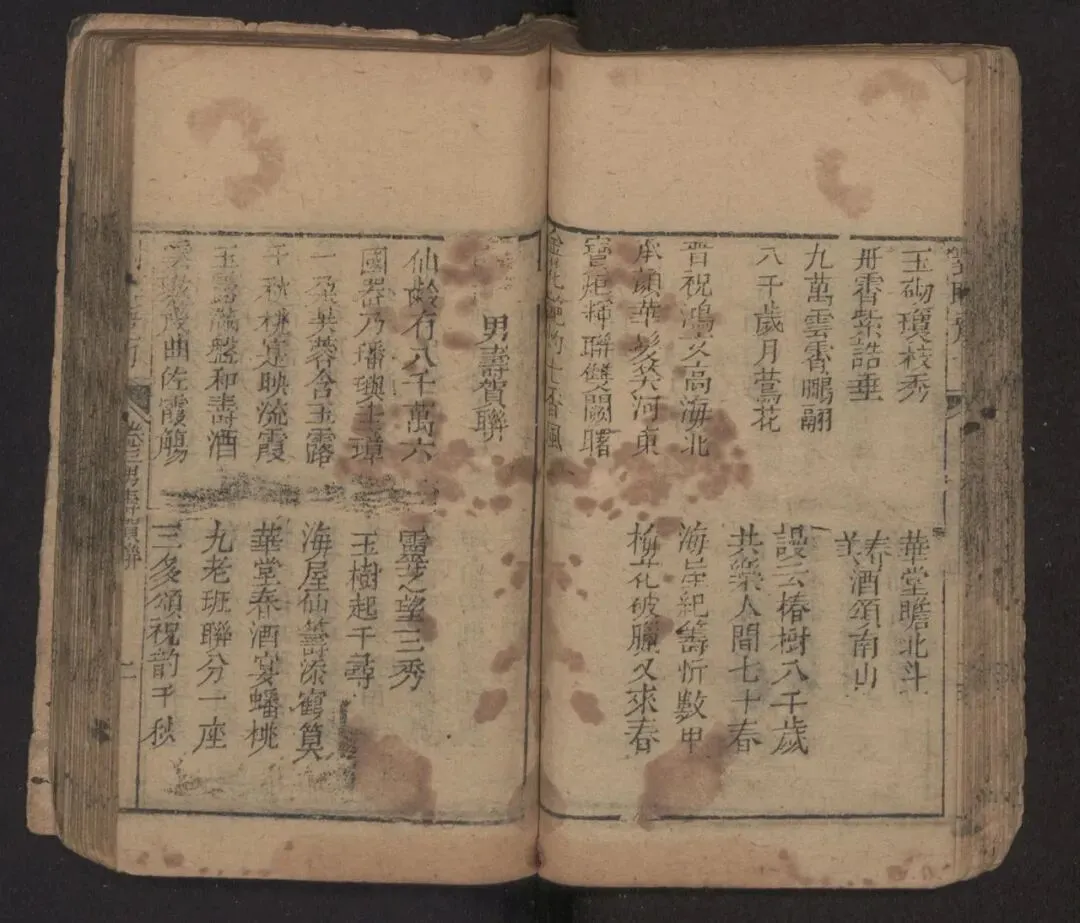 玉砌瓊枝秀
丹霄紫誥垂
九萬雲霄鵬翮
八千歲月鶯花
晉祝鴻文高海北
承顏華髮笑河東
寶炬輝聯雙闕曙
華堂瞻北斗
春酒頌南山
謾云椿樹八千歲
共樂人間七十春
海屋紀籌忻數甲
梅花破臘又來春
男壽賀聯
仙齡有八千萬六
國器乃璠璵圭璋
一朶芙蓉含玉露
千秋桃實映流霞
玉露滿盤和壽酒
幾曲佐霞觴
靈芝望三秀
玉樹起千尋
海屋仙籌添鶴筭
華堂春酒宴蟠桃
九老班聯分一座
三多頌祝韵千秋
卷三男壽賀聯